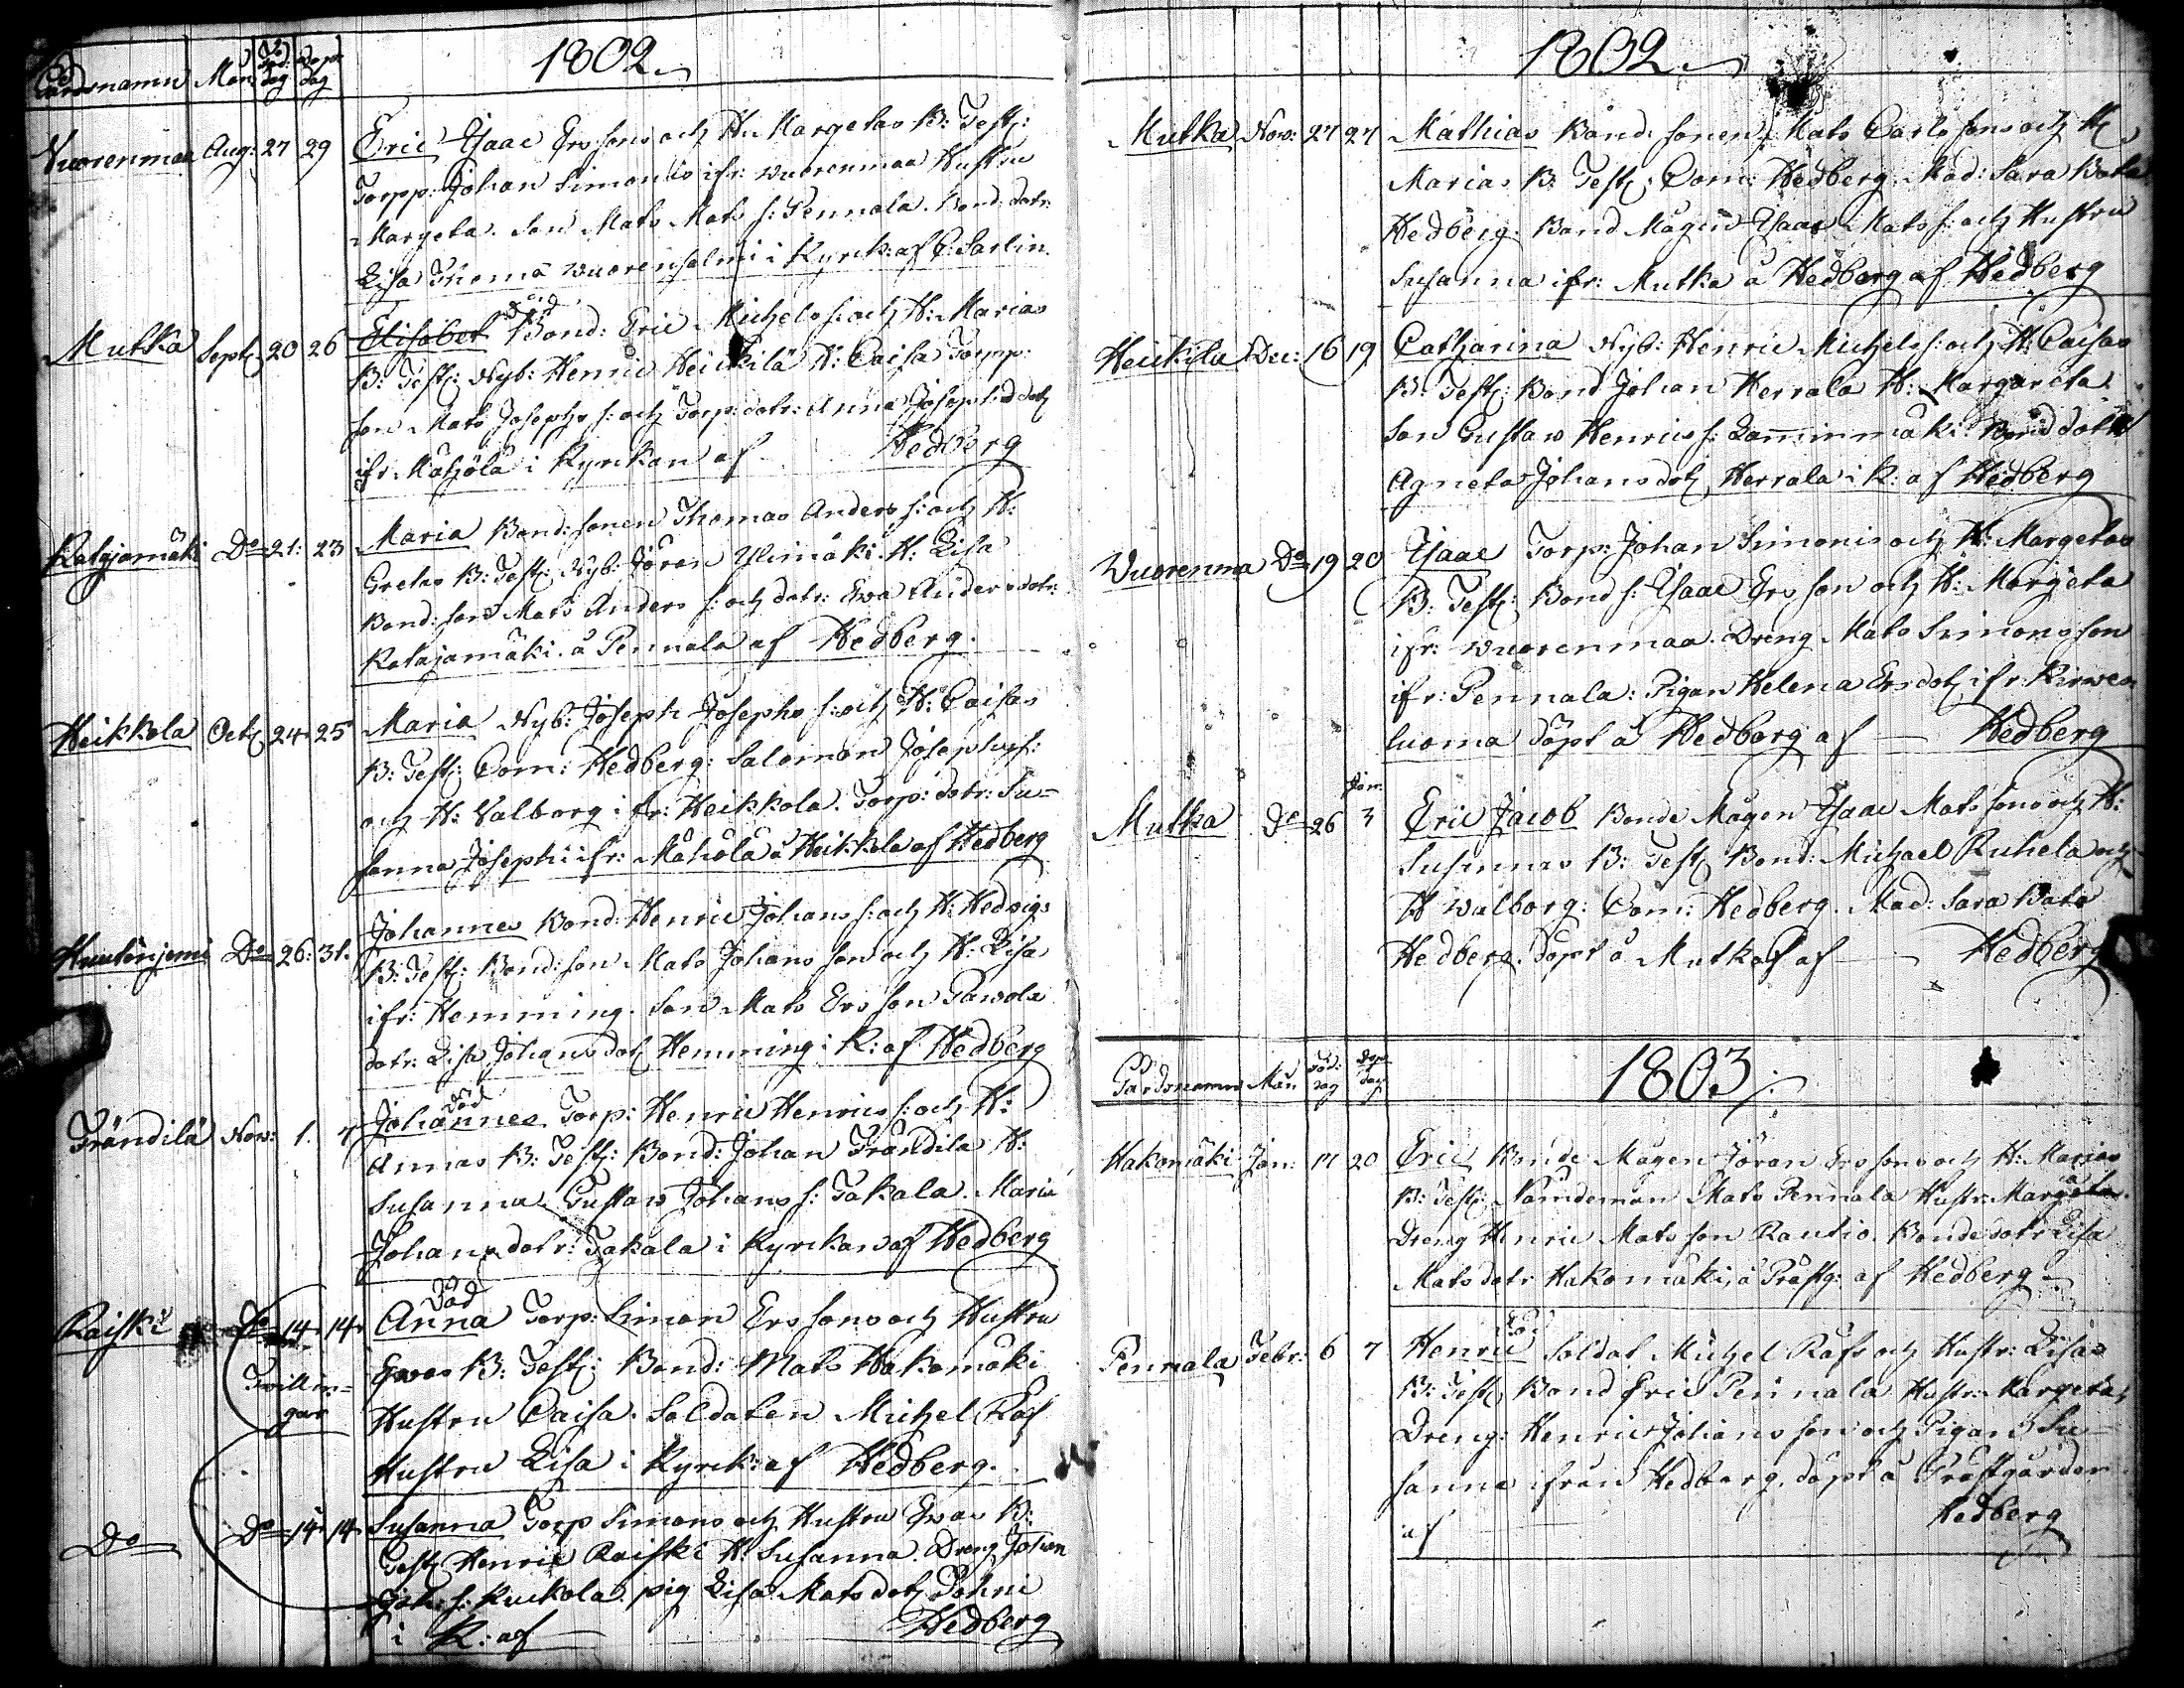 Gårdsnamn Mån. Föd. dag Döpt. dag 1802
Vuorenmaa Aug: 27 29 Eric Isaac Ers sons och H: Margetas B: Test:
Torpp: Johan Simonis ifr: Wuorenmaa Hustru
Margeta. Son Mats Mats s: Pennala. Bond: dotr:
Lisa Thoma Wuorensalmi i Kyrck: af E: Sarlin.
död
Mutka Sept: 20 26 Elisabet Bond: Eric Michels s: och H: Marias
B: Test: Nyb: Henric Heickilä H: Caisa Torpp:
son Mats Josephs s: och Torp: dotr: Anna Josephs dotr
ifr Måhölä i Kyrckan af Hedberg
Katajamäki Do 21: 23 Maria Bond: sonen Thomas Anders s: och H:
Gretas B: Test: Nyb: Jöran Ylimäki. H: Lisa
Bond: son Mats Anders s: och dotr: Ewa Anders dotr:
Katajamäki. å Pennala af Hedberg.
Heikkola Oct: 24 25 Maria Nyb: Joseph Josephs s: och H: Caisas
B: Test: Com: Hedberg: Salomon Josephs s:
och H: Valborg ifr: Heikkola. Torp: dotr: Su=
sanna Josephi ifr: Måhölä å Heikkola af Hedberg
Huutoniemi Do 26: 31. Johannes Bond: Henric Johans s: och H: Hedvigs
B: Test: Bond: son Mats Johans son och H: Lisa
ifr: Hemming. Son Mats Ers son Pawola
dotr: Lisa Johans dotr Hemming i K: af Hedberg
död
Frändilä Nov: 1. 7 Johannes Torp: Henric Henrics s: och H:
Annas B: Test: Bond: Johan Frändila H:
Susanna. Gustaw Johans s: Takala. Maria
Johans dotr: Takala i Kyrckan af Hedberg
Död
Raiski Do 14 14 Anna Torp: Simon Ers sons och Hustru
Twillin=
gar
Ewas B: Test: Bond: Mats Hakomäki
Hustru Caisa. Soldaten Michel Räf
Hustru Lisa i Kyrck: af Hedberg.
Do Do 14 14 Susanna Torp Simons och Hustru Ewas B:
Test: Henric Raiski H: Susanna. Dreng Johan
Joh: s: Kuckola. pig Lisa Mats dotr Pohni
i K: af Hedberg
1802
Mutka Nov: 27 27 Mathias Bond: sonen Mats Carls sons och H
Marias B: Test: Com: Hedberg. Mad: Sara Bata
Hedberg. Bond Mågen Isaac Mats s: och Hustru
Susanna ifr: Mutka å Hedborg af Hedberg
Heickilä Dec: 16 19 Catharina Nyb: Henric Michels s: och H: Caisas
B: Test: Bond Johan Herrala H: Margareta.
Son Gustaw Henrics s: Lamminmäki. Bond dotr
Agneta Johans dotr Herrala i K: af Hedberg
Wuorenma Do 19 20 Isaac Torp: Johan Simonis och H: Margetas
B: Test: Bond s: Isaac Ers son och H: Margeta
ifr: Wuorenmaa. Dreng Mats Simons son
ifr: Pennala: Pigan Helena Ers dotr ifr: Kirwes
luoma döpt å Hedborg af Hedberg
Jan:
Mutka Do 26 3 Eric Jacob Bonde Mågen Isaac Mats sons och H:
Susannas B: Test: Bond: Michael Ruhela och
H Walborg: Com: Hedberg. Mad: Sara Bata
Hedberg. döpt å Mutka af Hedberg
Gårdsnamn Mån Föd: dag Döpt dag 1803
Hakomäki Jan: 17 20 Eric Bonde Mågen Jöran Ers sons och H: Marias
B: Test: Nämdeman Mats Pennala Hustr: Margeta.
Dreng Henric Mats son Rautio. Bonde dotr Lisa
Mats dotr Hakomäki, å Prästg: af Hedberg
död
Pennala Febr: 6 7 Henric Soldat Michel Räfs och Hustr: Lisas
B: Test: Bond Eric Pennala Hustr: Margeta,
Dreng: Henric Johans son och Pigan Su=
sanna ifrån Hedborg. döpt å Prästgården
af Hedberg